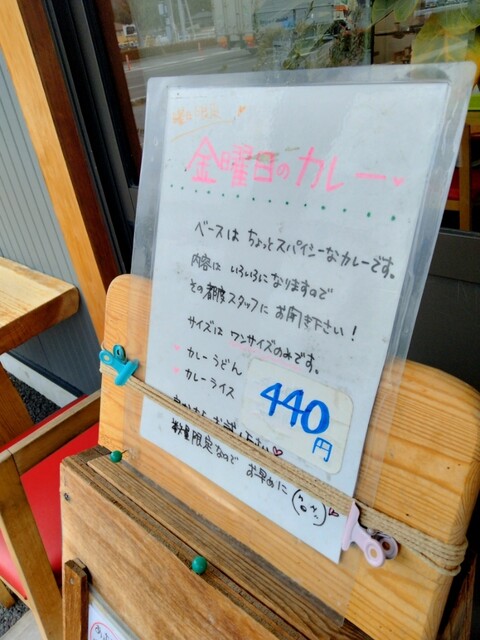 曜日限定
金曜日のカレー
ベースは ちょっとスパイシーなカレーです。
内容は いろいろになりますので
その都度スタッフに お聞き下さい!
サイズは ワンサイズのみです。
カレーうどん
カレーライス
440円
数量限定なので お早めに